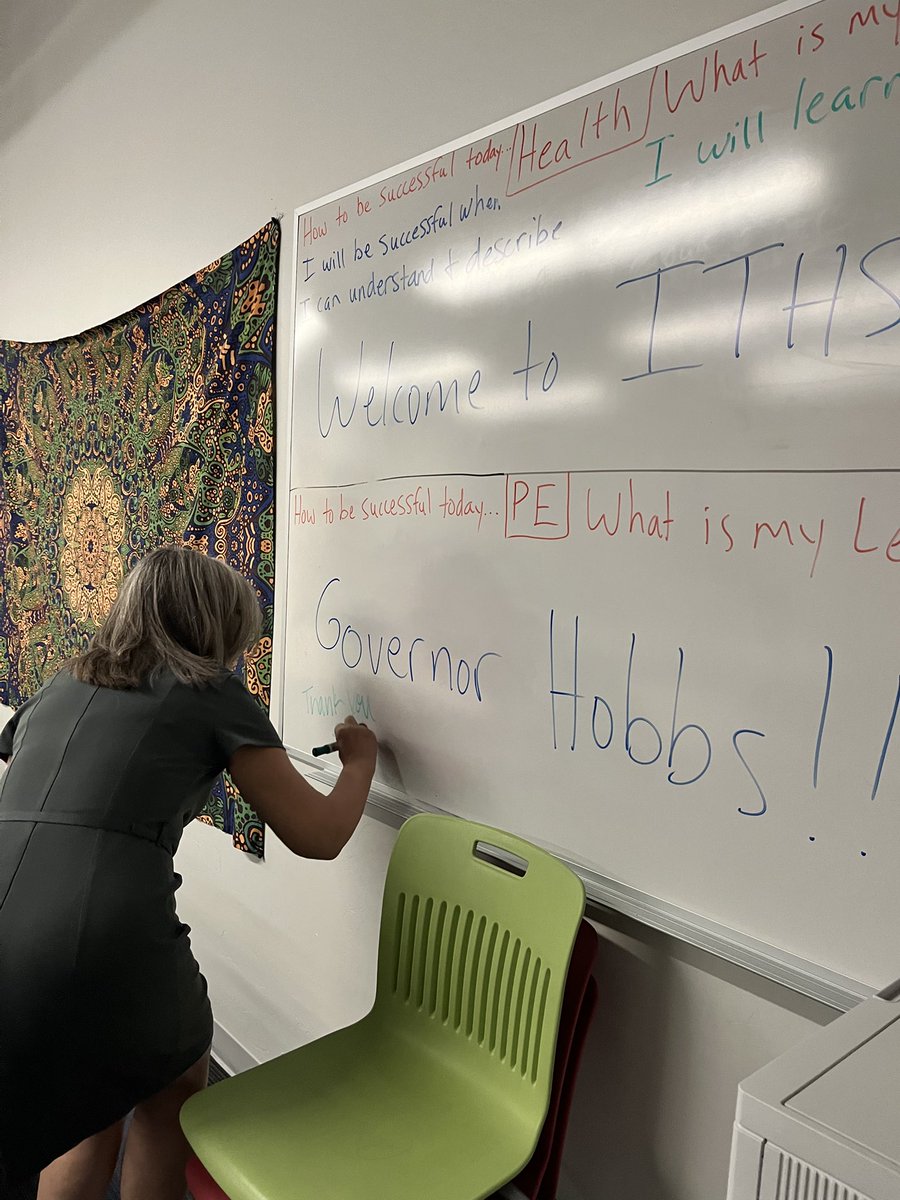 How to be successful today... Health What is my
I will be successful when I will learn
I can understand & describe
Welcome to ITHS
How to be successful today... PE What is my Le
Governor Hobbs!!
Thank you